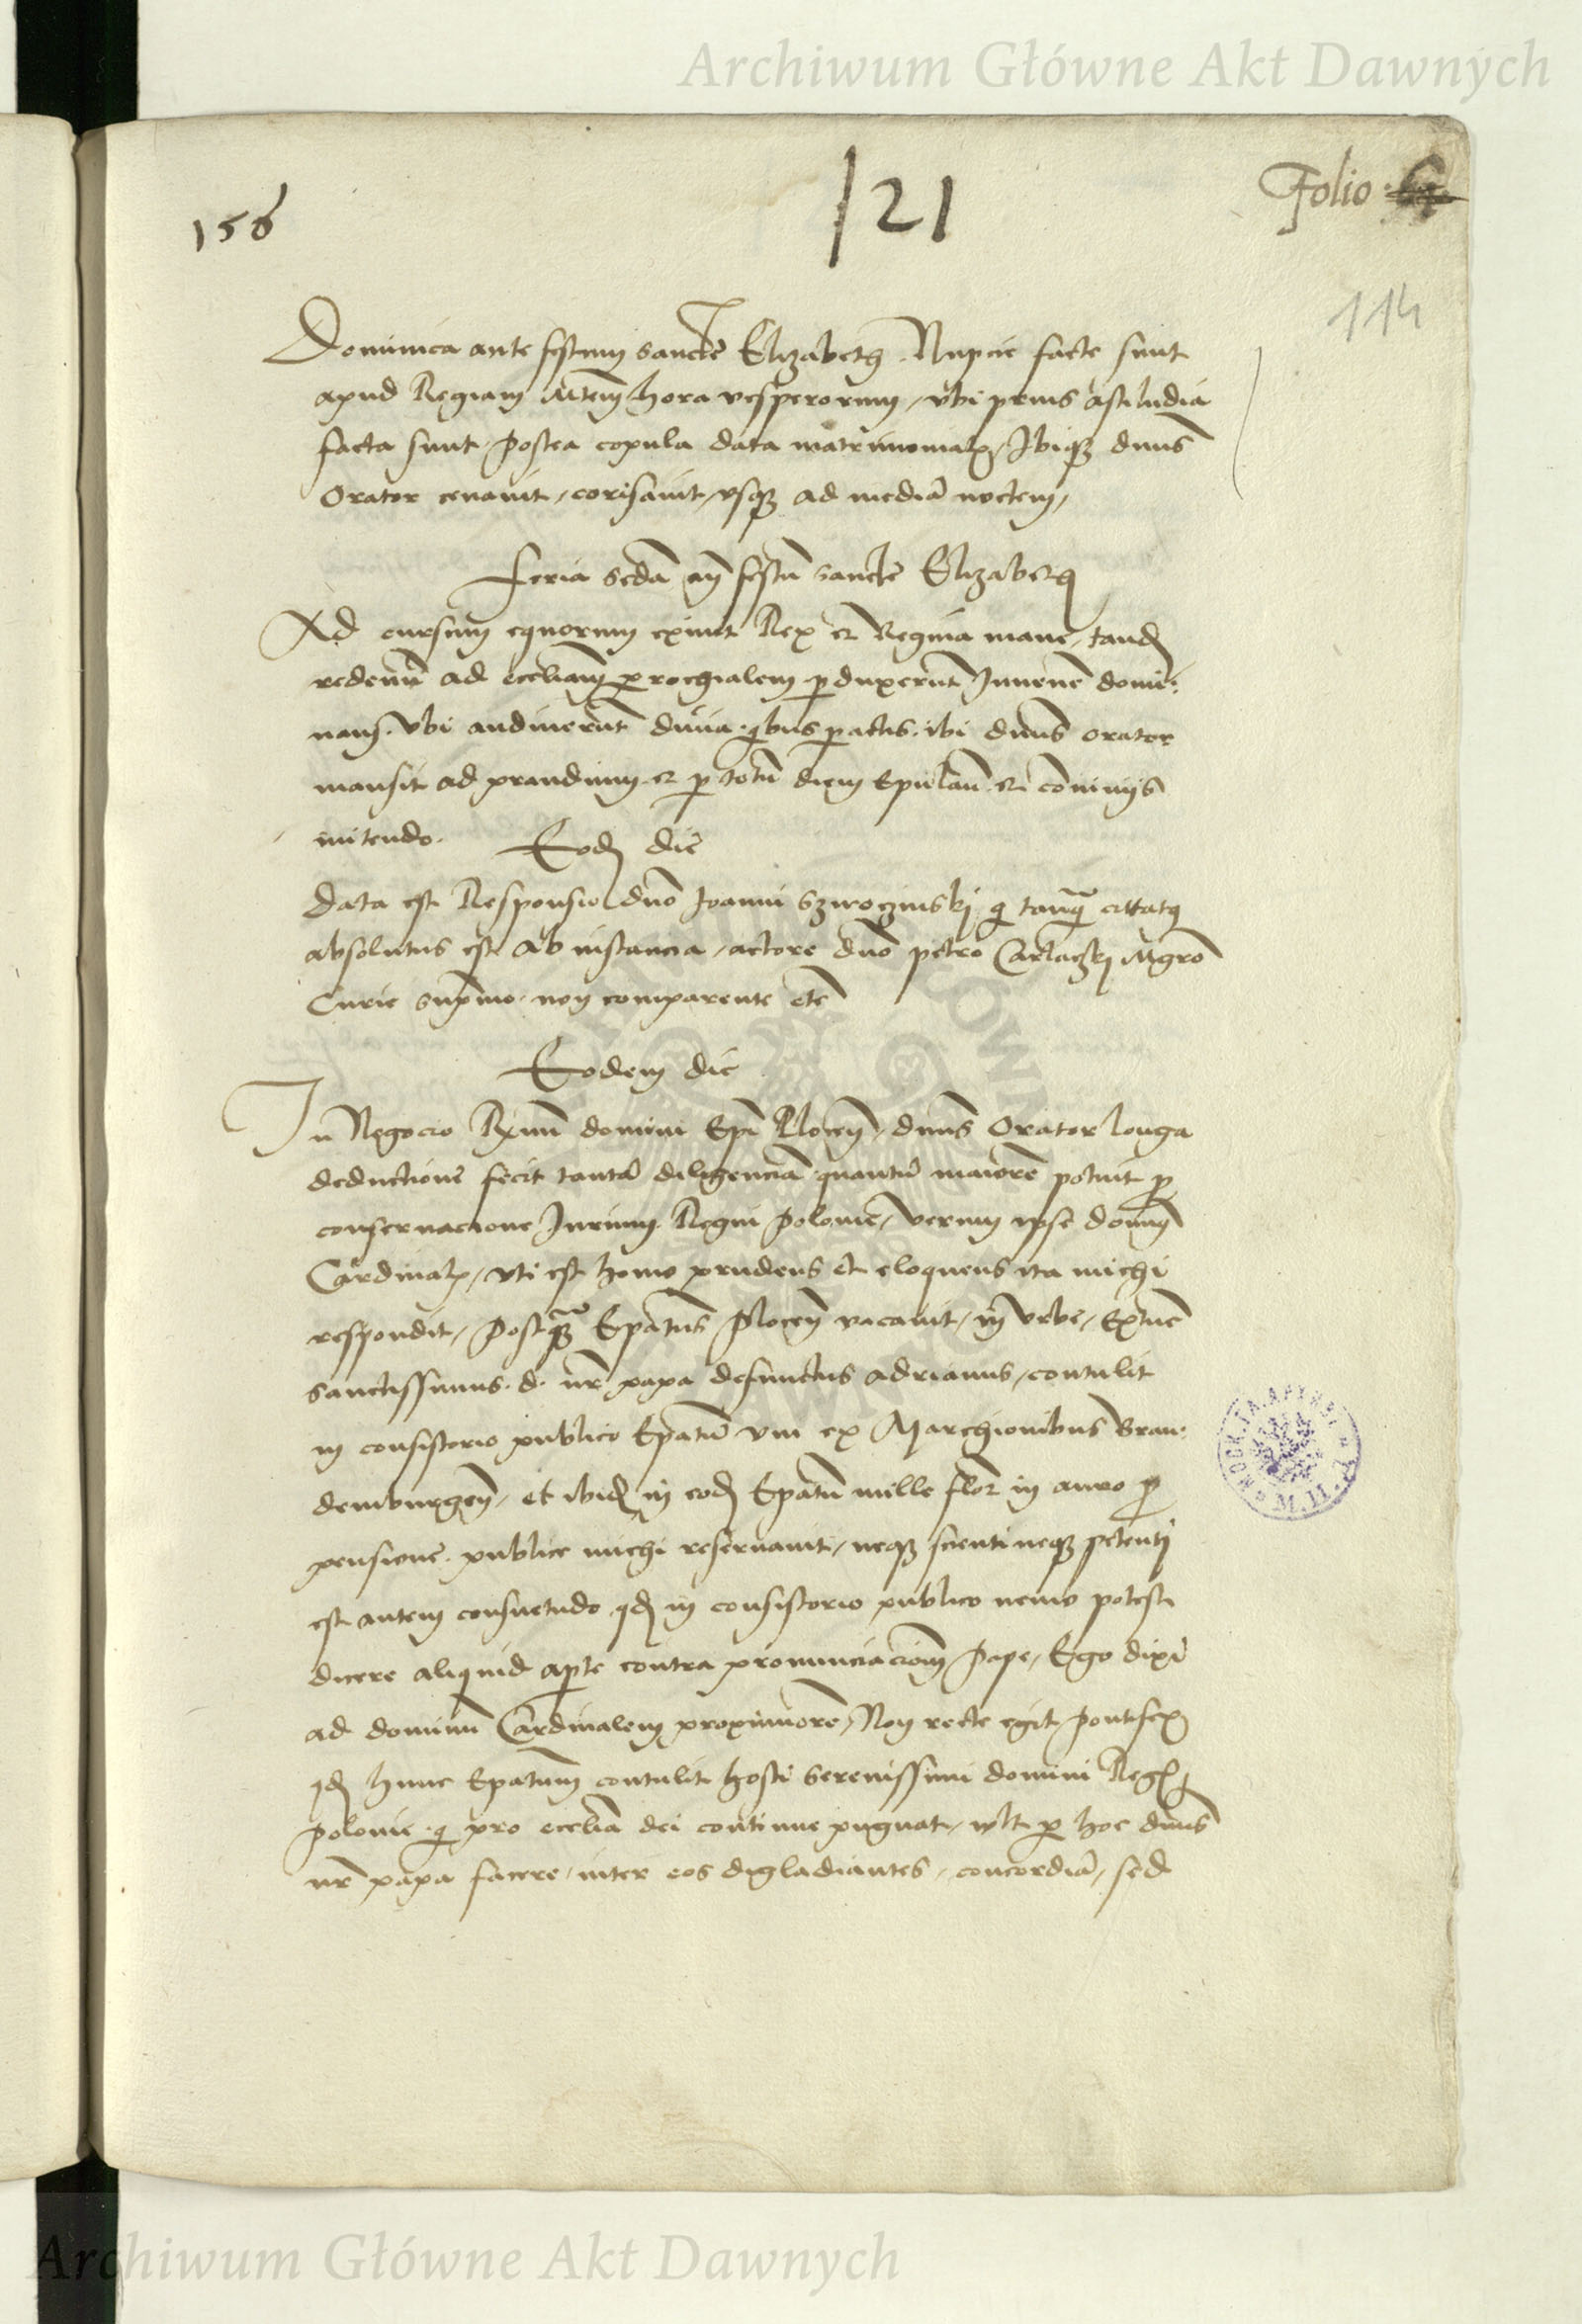 Archiwum Główne Akt Dawnych
Folio
156
121
114
Dominica ante festum sancte Elizabeth. Nupcie facte sunt
apud Regiam Mtem hora vesperorum, vbi prius astiludia
facta sunt, postea copula data matrimonialis, Ibique dnus
Orator cenavit, corisavit, vsque ad mediā noctem,
Feria scda añ festū sancte Elizabeth
Ad cursum equorum exiuit Rex et Regina mane, tandem
redeunt ad eccliam parrochialem produxerunt Iuuenē domi:
nam. vbi audiuerunt diuina. quibus peractis. ibi dnus orator
mansit ad prandium et per totū diem Epulaū et conuiuijs
intendo. Eodem die
Data est Responsio dno Ioanni qui tanquam citatus
absolutus est ab instancia, actore dno petro Mgro
Curie supmo, non comparente etc
Eodem die
In Negocio Rmi domini Epi Plocen, dnus Orator longa
deductione fecit tantā diligenciā quantū maiorē potuit pro
conseruacione Iurium Regni Polonie, verum ipse dominus
Cardinalis, vti est homo prudens et eloquens ita michi
respondit, Postquam Epatus Plocen vacauit, in vrbe, Extunc
sanctissimus. d. nr papa defunctus adrianus, contulit
in consistorio publico Epatū vni ex Marchionibus Bran:
demburgen, et ibidem in eodem Epatū mille flor in auro pro
pensione. publice michi reseruauit, neque scienti neque petenti
est autem consuetudo quod in consistorio publico nemo potest
dicere aliquid aperte contra pronunciacionem Pape, Ego dixi
ad dominū Cardinalem proximiorē, Non recte egit Pontifex
quod hunc Epatum contulit hosti serenissimi domini Regis
polonie. qui pro ecclia dei continue pugnat, vult per hoc dnus
nr papa facere, inter eos digladiantes, concordiā, sed
Archiwum Główne Akt Dawnych